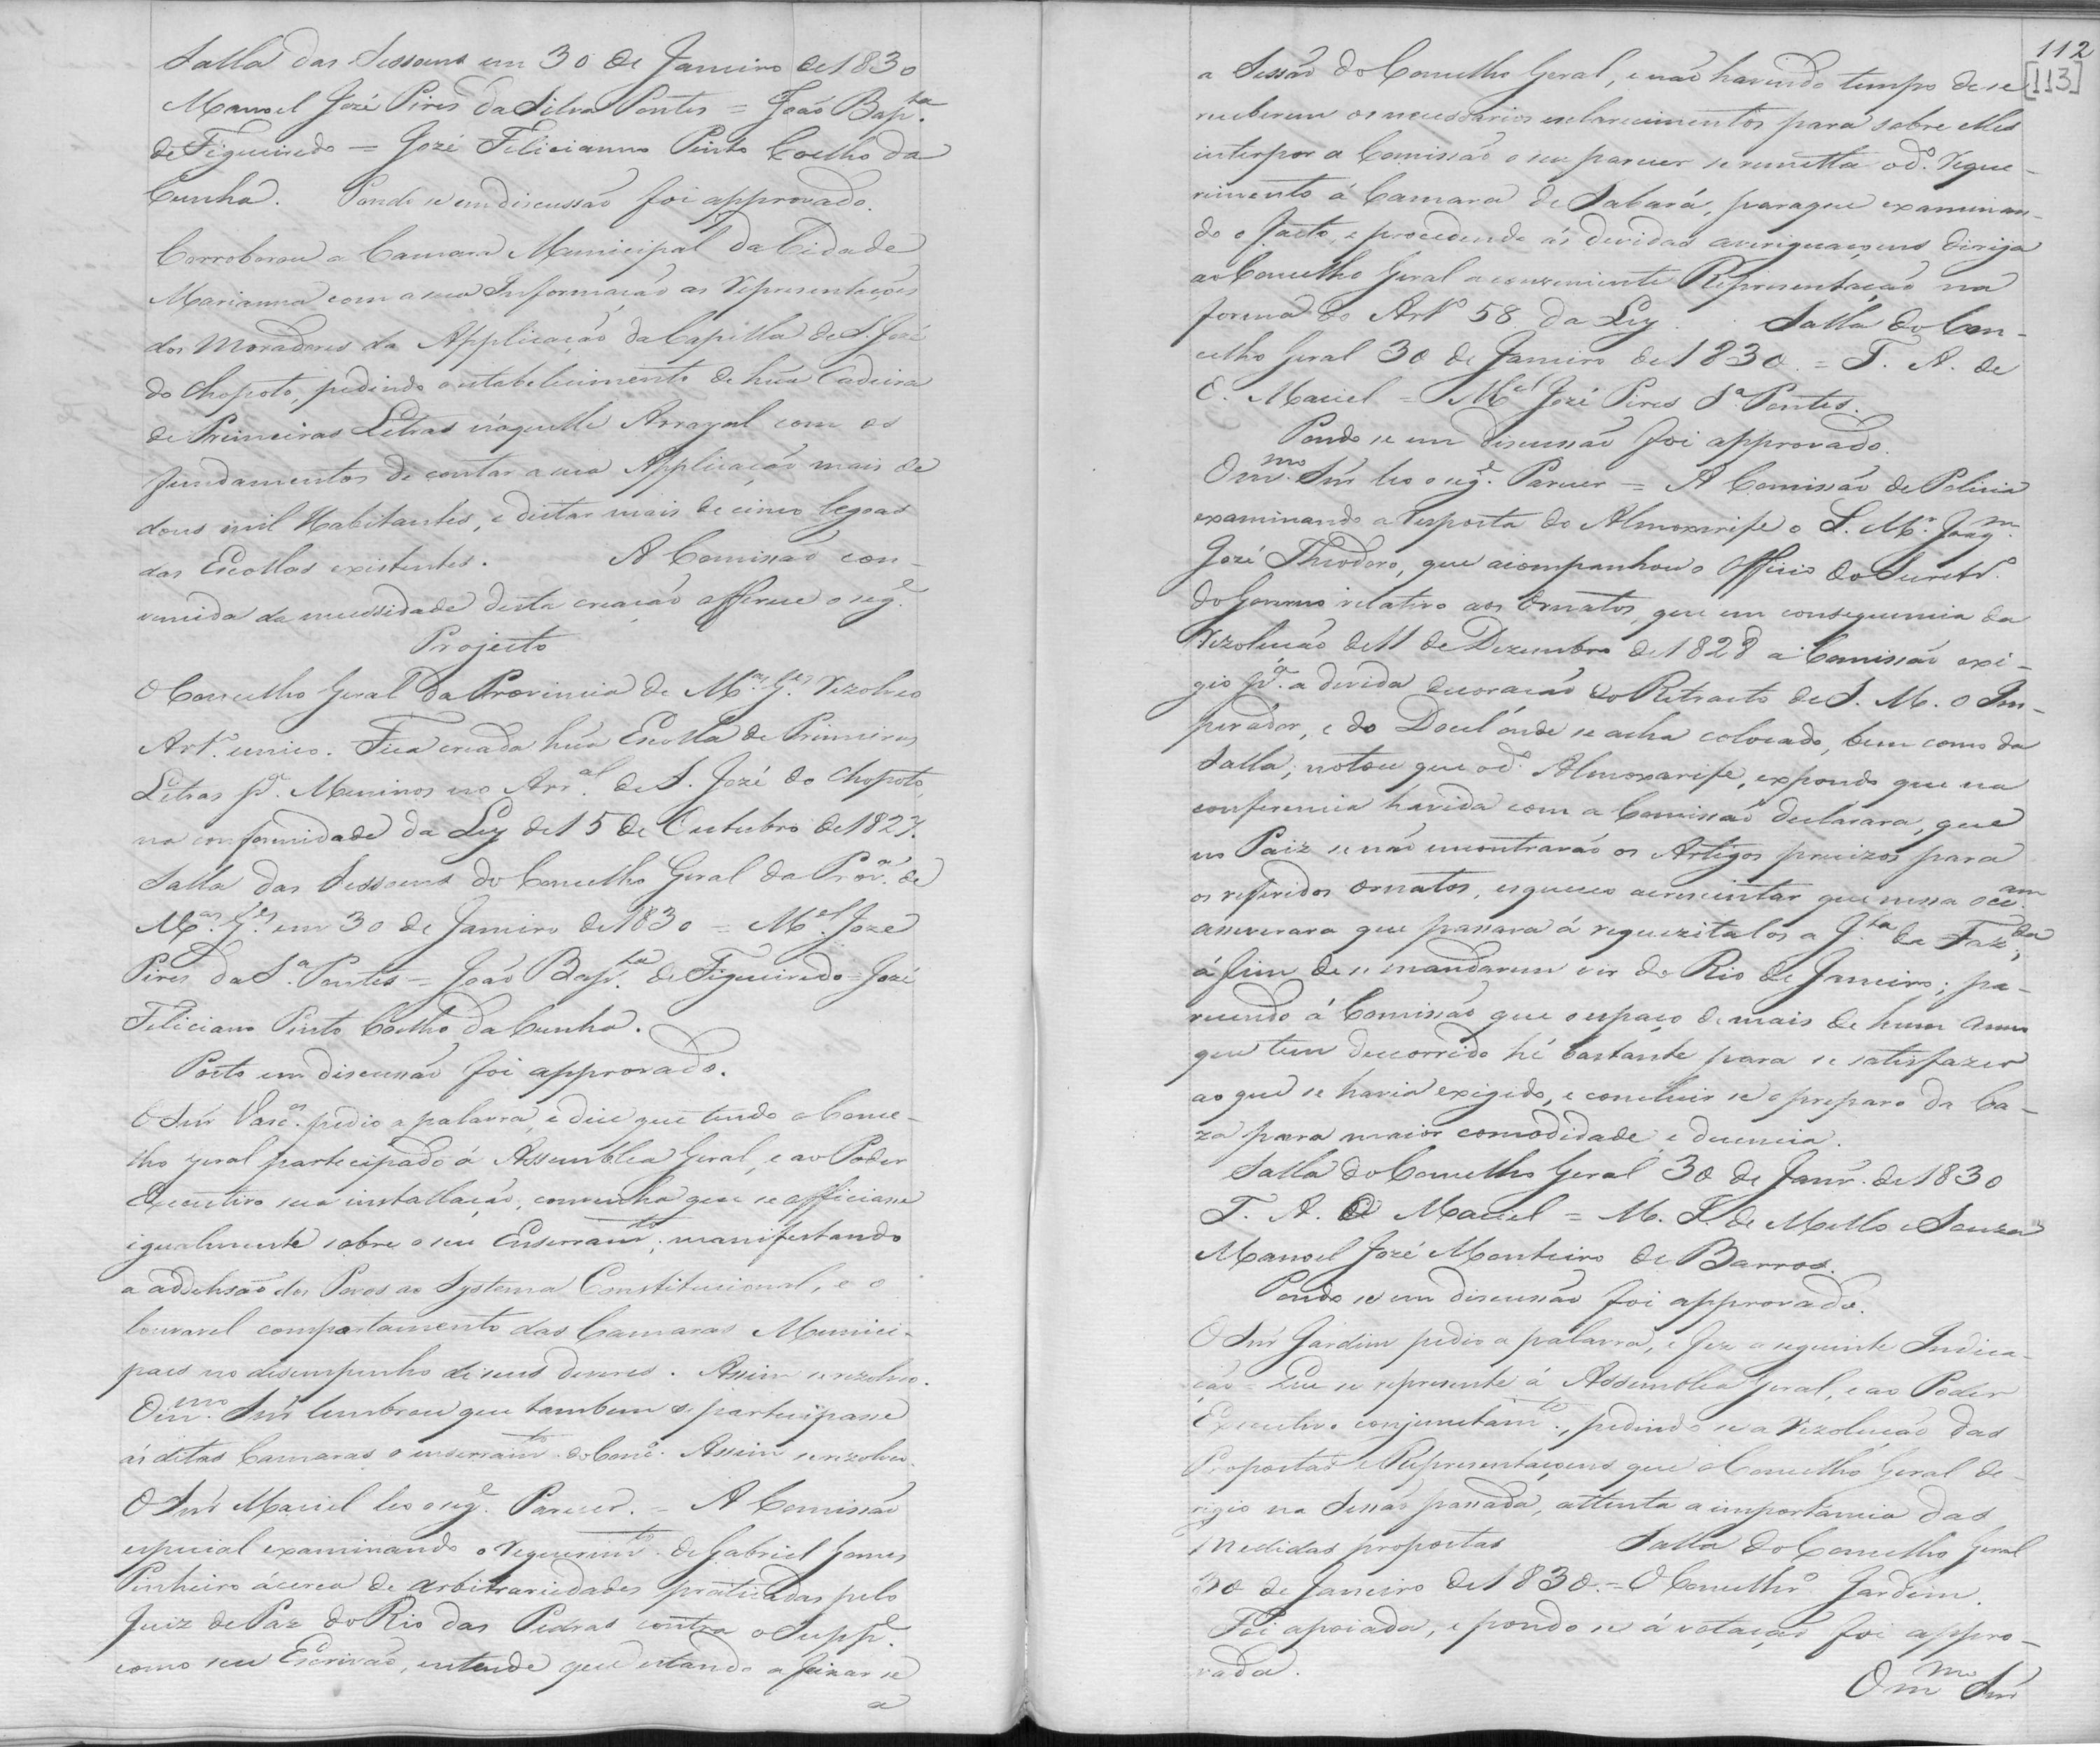 Salla das Sessoens em 30 de Janeiro de 1830
Manoel José Pires da Silva Pontes = João Bap.ta
de Figueiredo = Jozé Feliciano Pinto Coelho da
Cunha. Pondo se em discussão foi approvado.
Corroborou a Camara Municipal da Cidade
Marianna com a sua Informação as Representações
dos Moradores da Applicação da Capella de S. José
do Chopoto, pedindo o estabelecimento de hũa Cadeira
de Primeiras Letras n'aquelle Arrayal com os
fundamentos de contar a sua Applicação mais de
dous mil Habitantes, e distar mais de cinco legoas
das Escollas existentes. A Comissão con-
vencida da necessidade desta creação offerece o seg.e
Projecto
O Concelho Geral da Provincia de M.as G.es Rezolveo
Art.o unico. Fica creada hũa Escolla de Primeiras
Letras p.a Meninos no Arr.al de S. Jozé do Chopoto,
na conformidade da Ley de 15 de Outubro de 1827.
Salla das Sessoens do Concelho Geral da Prov.a de
M.as G.es em 30 de Janeiro de 1830 = M.el Joze
Pires da S.a Pontes = João Bap.ta de Figueiredo = José
Feliciano Pinto Coelho da Cunha.
Posto em discussão foi approvado.
O Snr̃ Vasc.os pedio a palavra, e dice que tendo o Conce-
lho geral partecipado á Assemblea Geral, e ao Poder
Executivo sua installação, convinha que se officiasse
igualmente sobre o seu Enserram.to, manifestando
a addehsão dos Povos ao Systema Constitucional, e o
louvavel comportamento das Camaras Munici-
paes no desempenho de seus deveres. Assim se rezolveo.
O m.mo Snr̃ lembrou que tambem se participasse
ás ditas Camaras o enserram.to do Conc.o Assim se rezolveo.
O Snr̃ Maciel leo o seg.e Parecer. = A Comissão
especial examinando o requerim.to de Gabriel Gomes
Pinheiro ácerca de arbitrariedades praticadas pelo
Juiz de Paz do Rio das Pedras contra o Supp.e
como seu Escrivão, entende que estando a fixar se
a
112
[113]
a Sessão do Concelho Geral, e não havendo tempo de se
receberem os necessarios esclarecimentos para sobre elles
interpor a Comissão o seu parecer se remetta o d.o reque-
rimento á Camara de Sabará, para que examinan-
do o facto, e procedendo ás devidas averiguaçoens dirija
ao Concelho Geral a conveniente Representação na
forma do Art.o 58 da Ley. Salla do Con-
celho Geral 30 de Janeiro de 1830. = T. A. de
O. Maciel = M.el José Pires S.a Pontes.
Pondo se em discussão foi approvado.
O m.mo Snr̃ leo o seg.e Parecer = A Comissão de Policia
examinando a resposta do Almoxarife o S. M.r Joaq.m
Jozé Theodoro, que acompanhou o Officio do Secret.o
do Governo relativo aos Ornatos, que em consequencia da
Rezolução de 11 de Dezembro de 1828 a Comissão exi-
gio p.a a devida decoração do Retracto de S. M. O Im-
perador, e do Docel onde se acha colocado, bem como da
Salla; notou que o d.o Almoxarife, expondo que na
conferencia havida com a Comissão declarara, que
no Paiz se não encontravão os Artigos precizos para
os referidos ornatos, esqueceo acrescentar que nessa occ.am
asseverara que passava á requezitalos a J.ta da Faz.da,
á fim de se mandarem vir do Rio de Janeiro; pa-
recendo á Comissão que o espaço de mais de hum anno
que tem decorrido hé bastante para se satisfazer
ao que se havia exigido, e concluir se o preparo da Ca-
za para maior comodidade e decencia.
Salla do Concelho Geral 30 de Janr.o de 1830
T. A. O Maciel = M. I. de Mello e Souza =
Manoel Jozé Monteiro de Barros.
Pondo se em discussão foi approvado.
O Snr̃ Jardim pedio a palavra, e fez a seguinte Indica-
ção = Que se represente á Assemblea Geral, e ao Poder
Executivo conjunctam.te, pedindo se a Rezolução das
Propostas e Representaçoens que o Concelho Geral de-
rigio na Sessão passada, attenta a importancia das
Medidas propostas Salla do Concelho Geral
30 de Janeiro de 1830. = O Concelhr.o Jardim.
Foi apoiada, e pondo se á votação foi appro-
vada.
O m.mo Snr̃